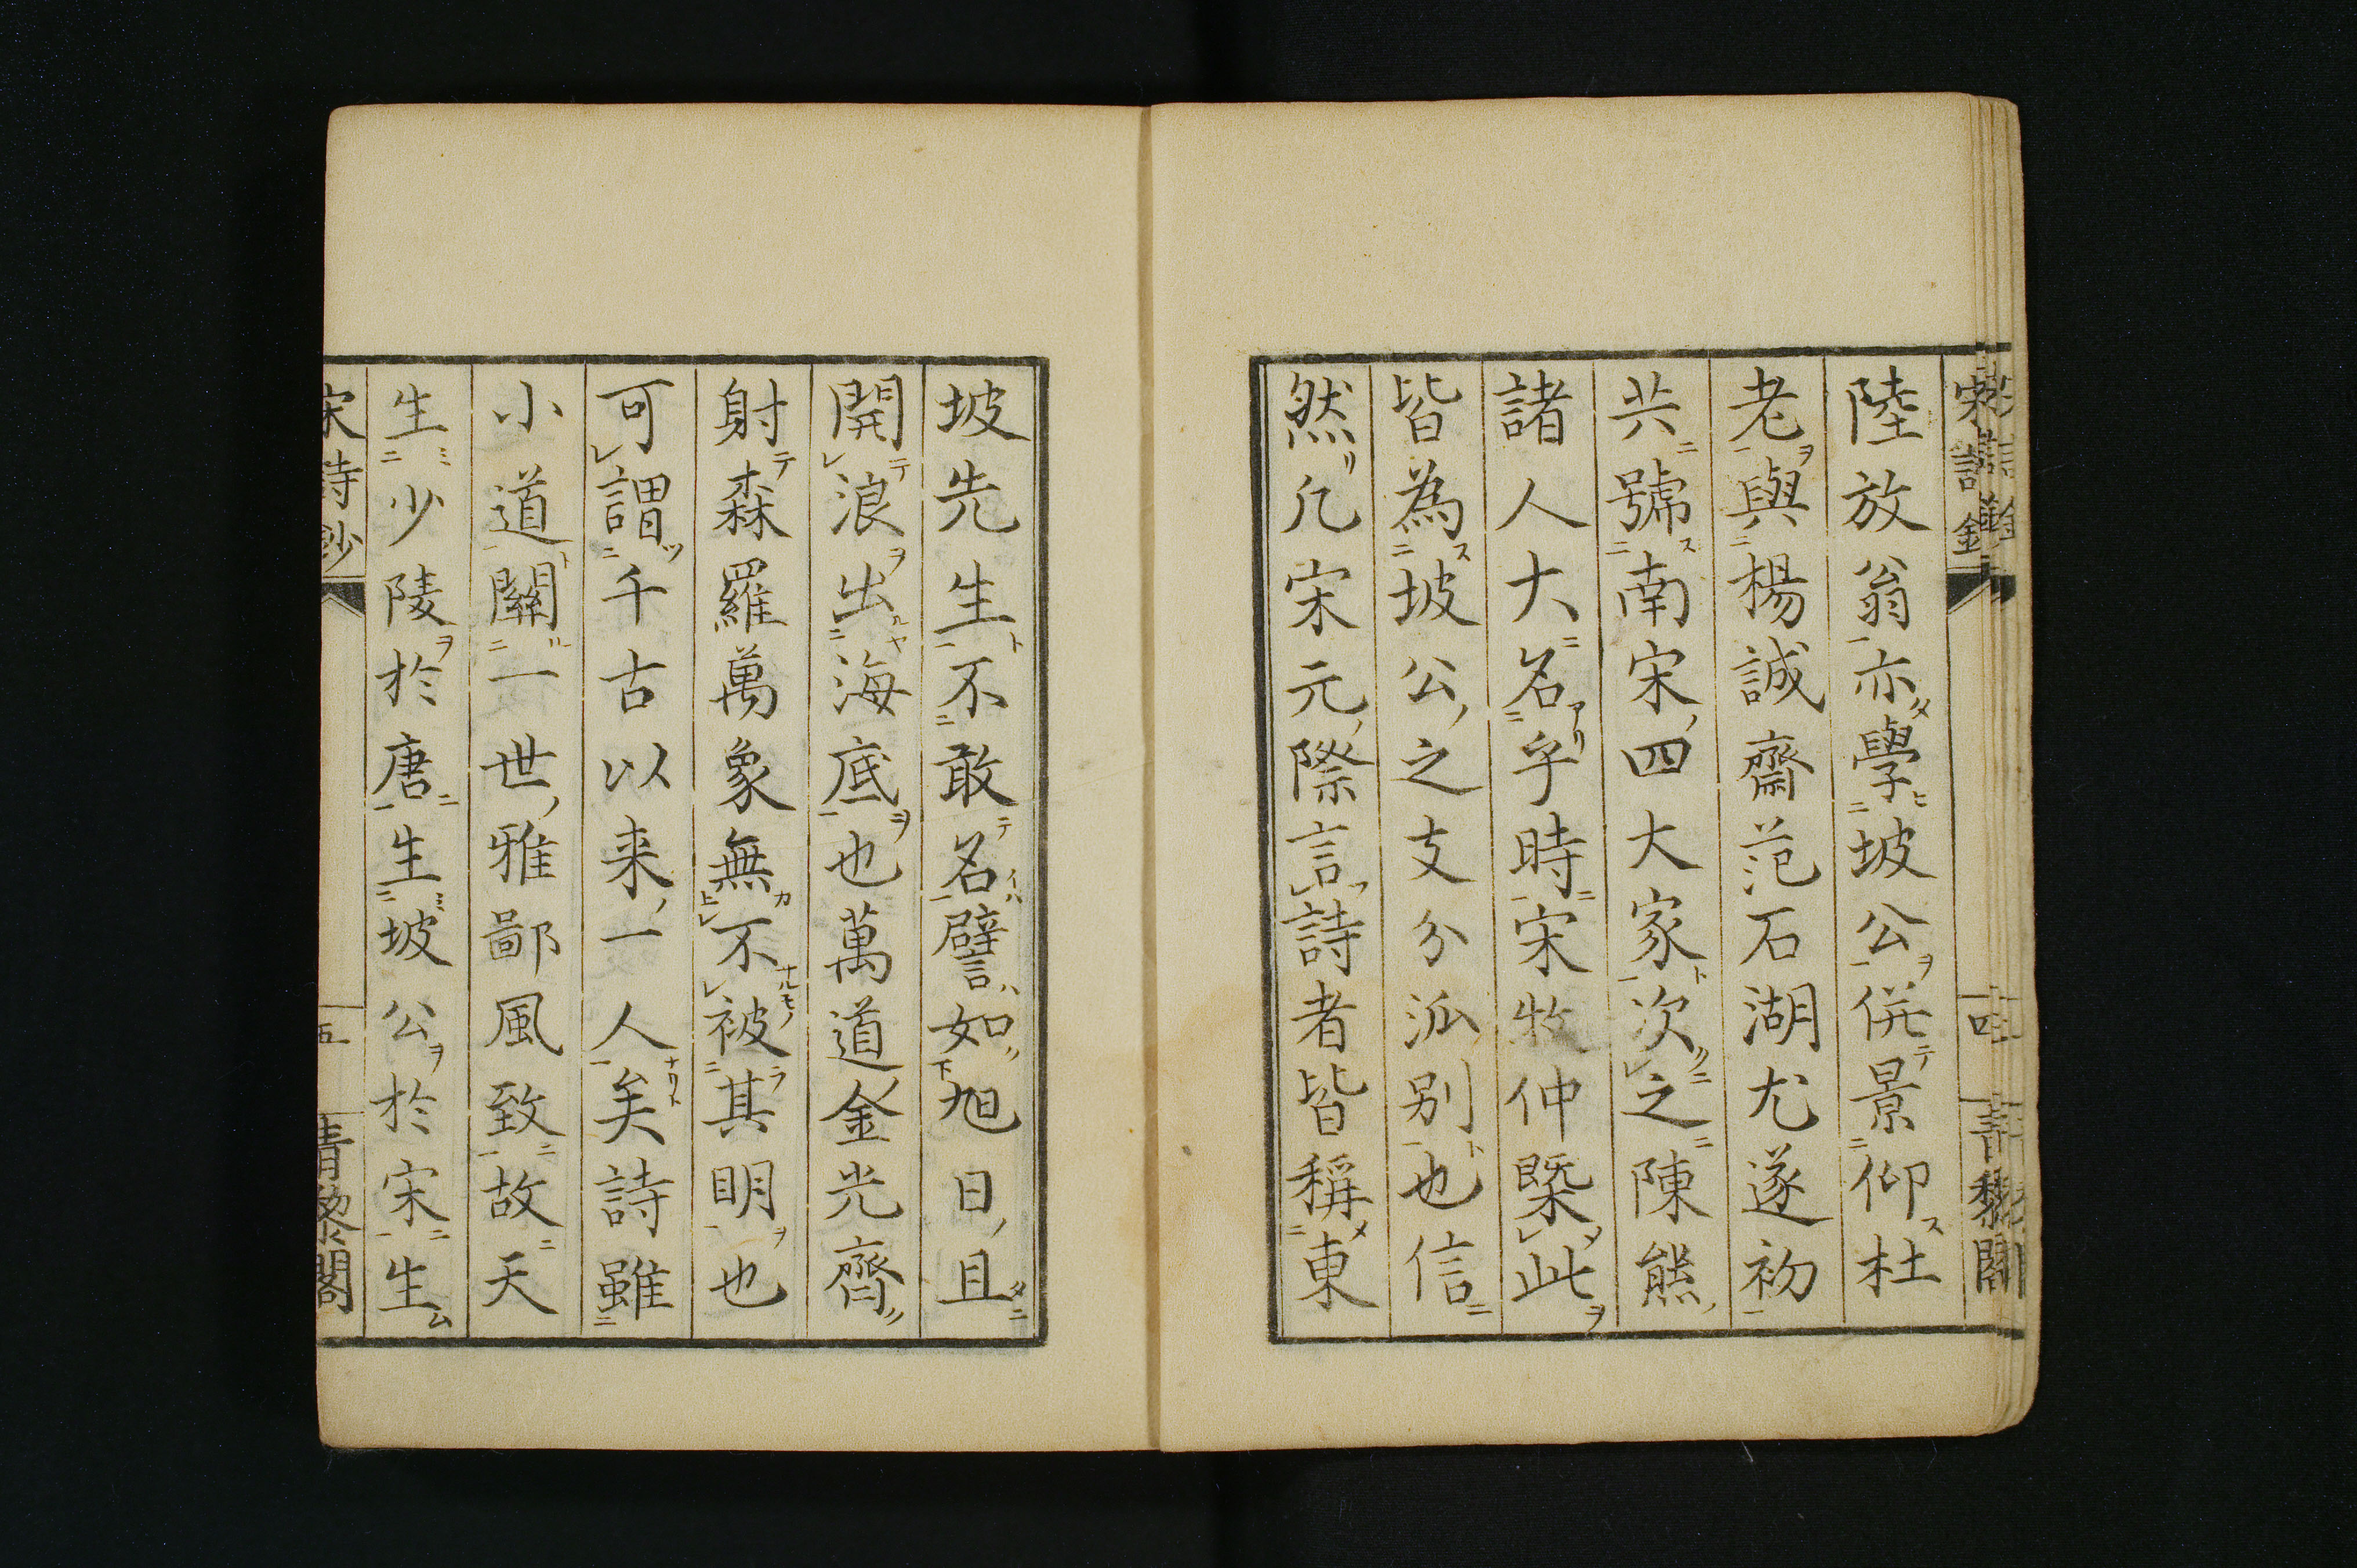 陸放翁亦學坡公併景仰杜
老與楊誠齋范石湖尤遂初
共號南宋四大家次之陳熊
諸人大名乎時宋牧仲槩此
皆為坡公之支分派別也信
然凡宋元際言詩者皆稱東
坡先生不敢名譬如旭日且
開浪出海底也萬道金光齊
射森羅萬象無不被其明也
可謂千古以来一人矣詩雖
小道關一世雅鄙風致故天
生少陵於唐生坡公於宋生
宋詩鈔
五
青黎閣